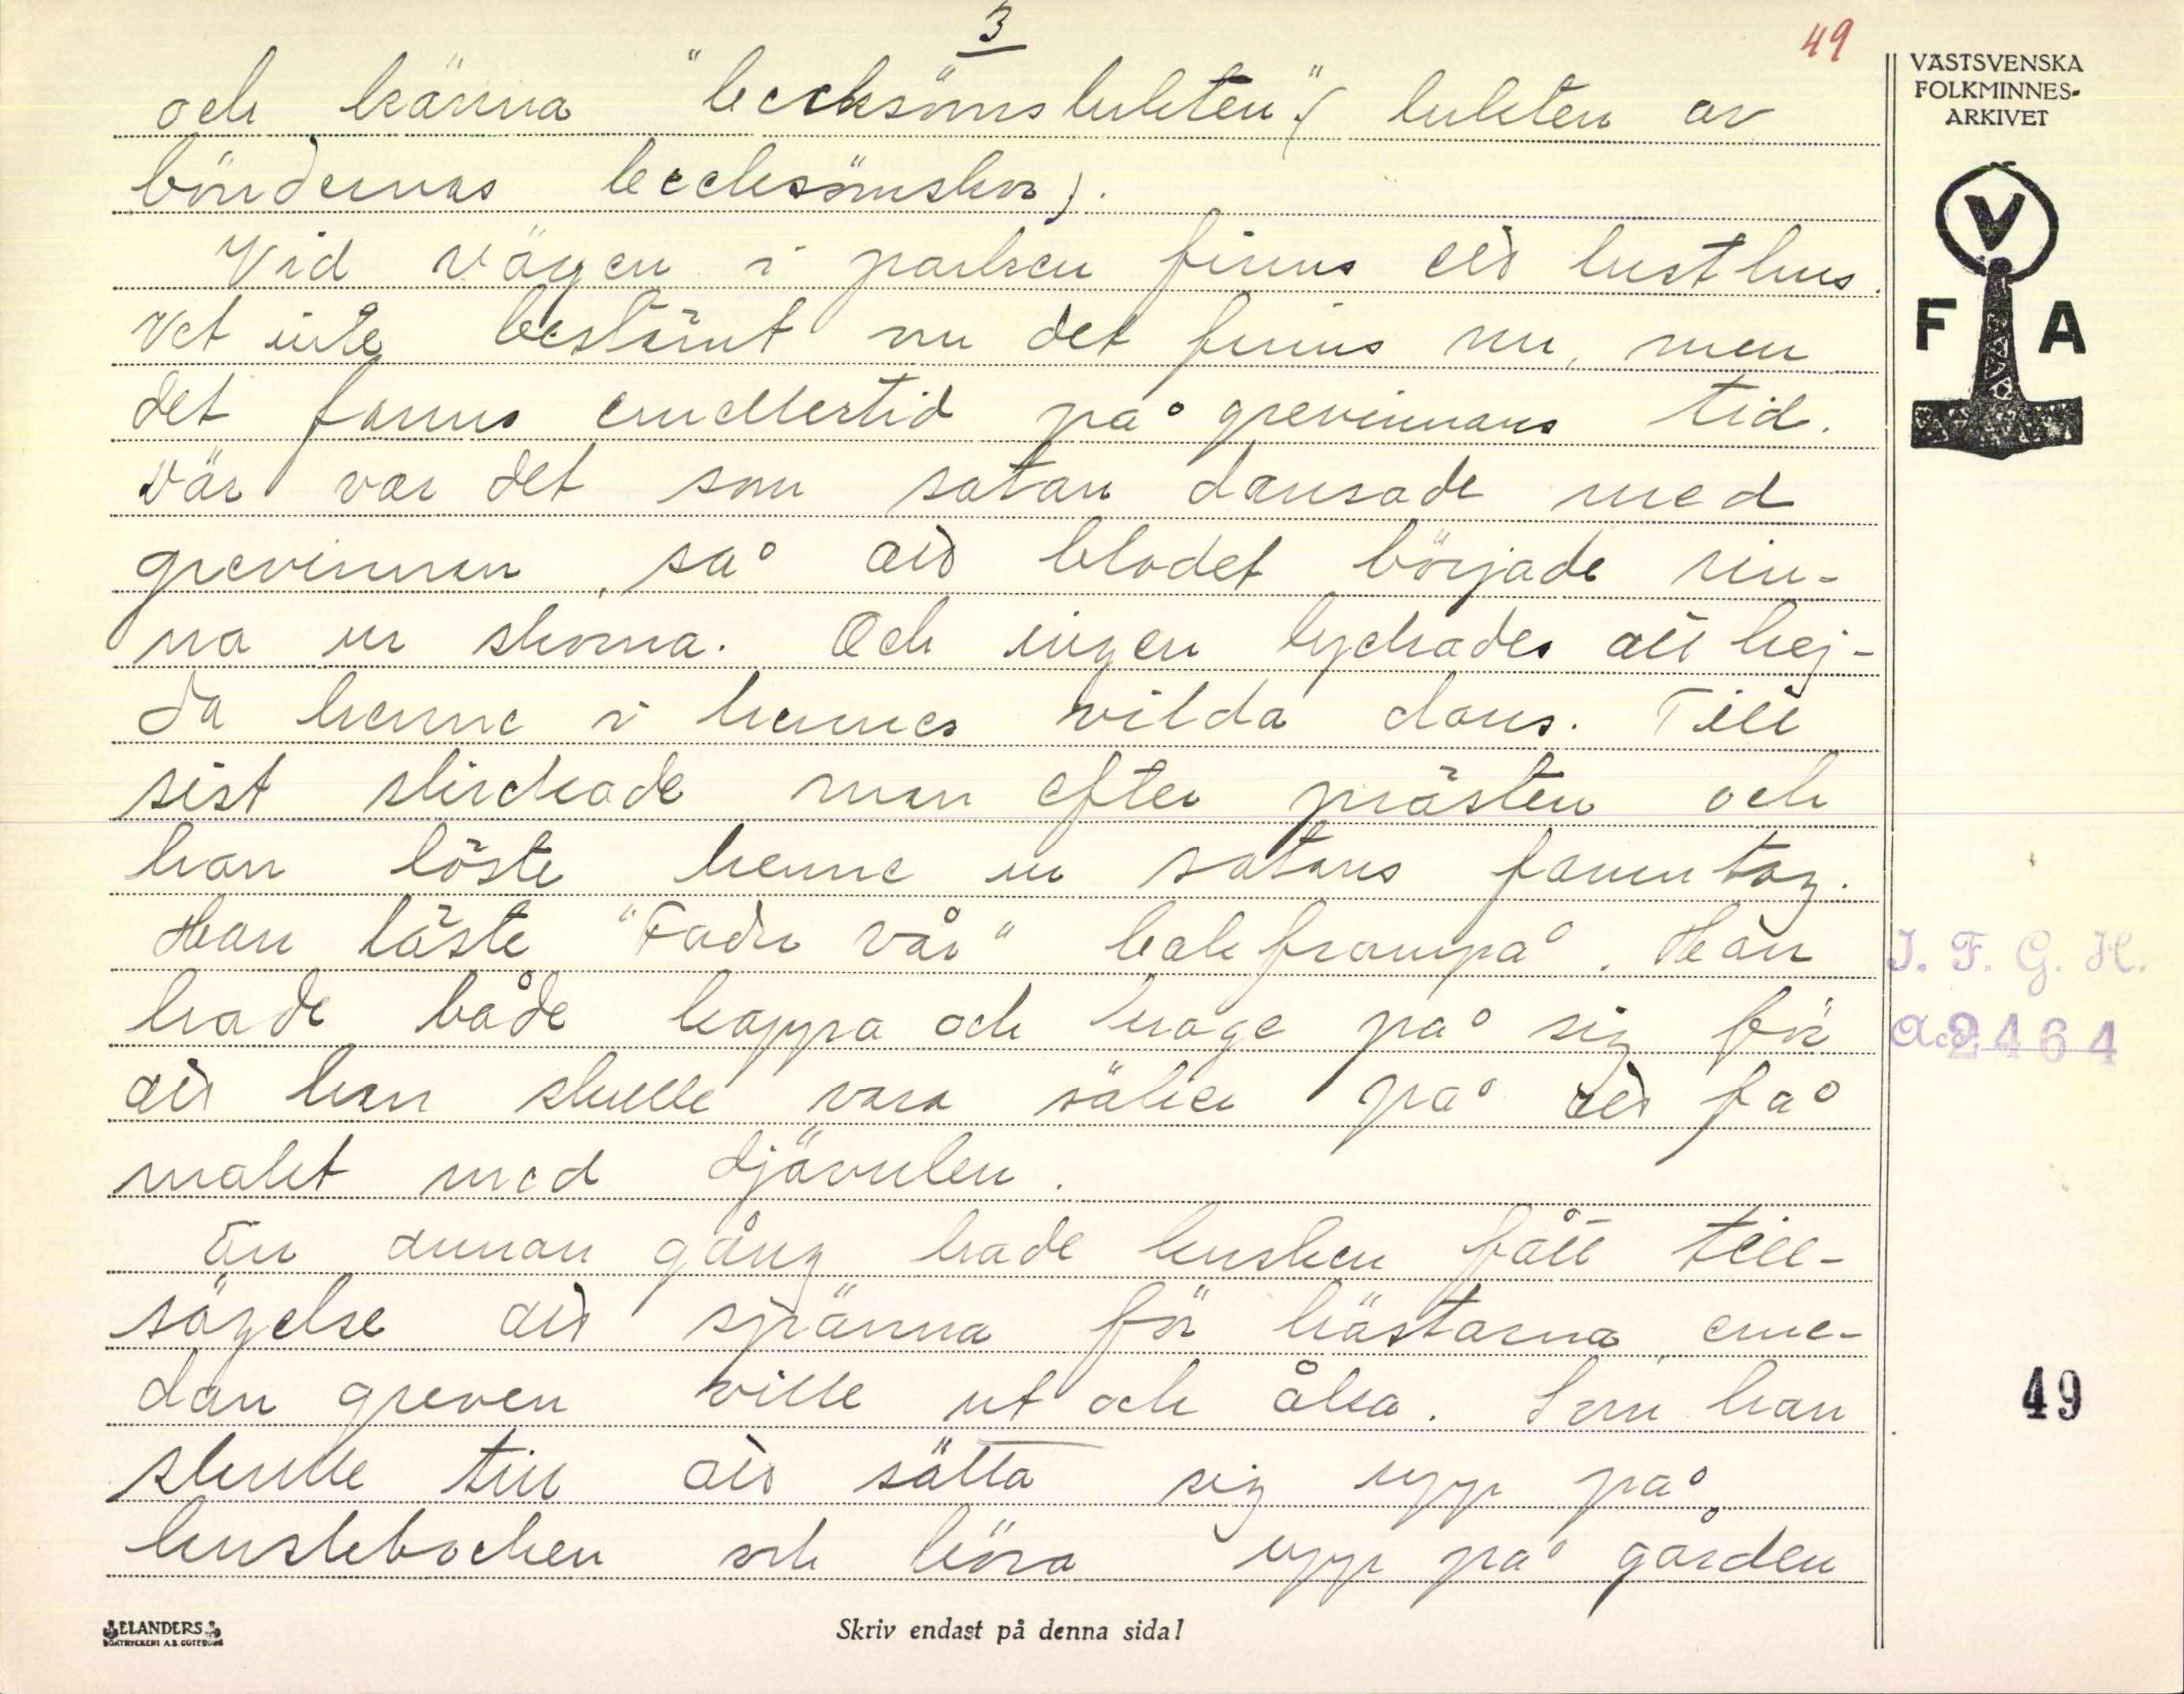 3
49
och känna "becksömslukten" (lukten av
böndernas becksömskor).
Vid vägen i parken finns ett lusthus.
Vet inte bestämt om det finns nu, men
det fanns emellertid på grevinnans tid.
Där var det som satan dansade med
grevinnan, så att blodet började rin-
na ur skorna. Och ingen lyckades att hej-
da henne i hennes vilda dans. Till
sist skickade man efter prästen och
han löste henne ur satans famntag.
Han läste "Fader vår" bakframpå. Han
hade både kappa och krage på sig för
att han skulle vara säker på att få
makt med djävulen.
En annan gång hade kusken fått till-
sägelse att spänna för hästarna, eme-
dan greven ville ut och åka. Som han
skulle till att sätta sig upp på
kuskbocken och köra upp på gården
VÄSTSVENSKA
FOLKMINNES-
ARKIVET
V
F A
I. F. G. H.
Acc 2464
49
ELANDERS
BOKTRYCKERI A.B. GÖTEBORG
Skriv endast på denna sida!